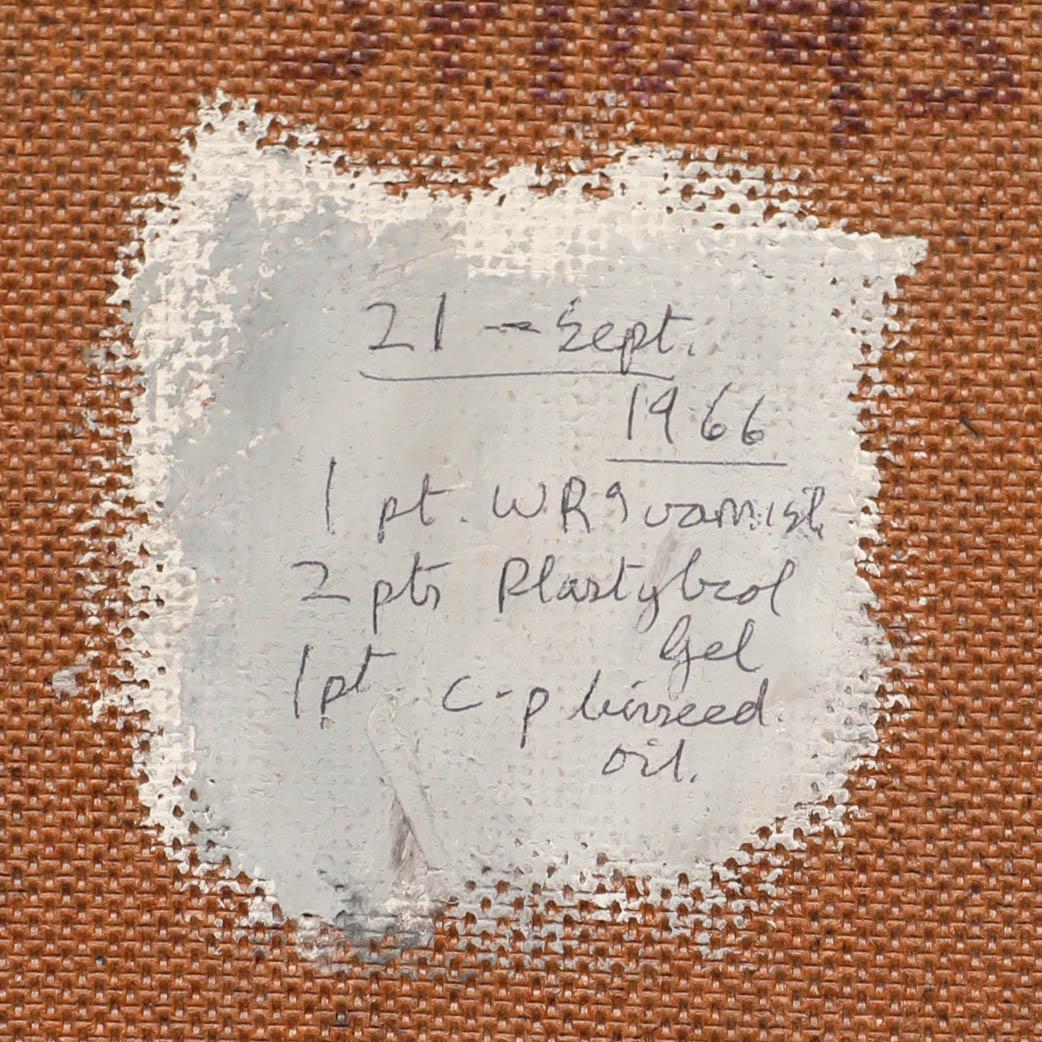 21 - Sept.
1966
1 pt. WR9 varnish
2 pts Plastybrol
Gel
1 pt. C-p linseed.
oil.